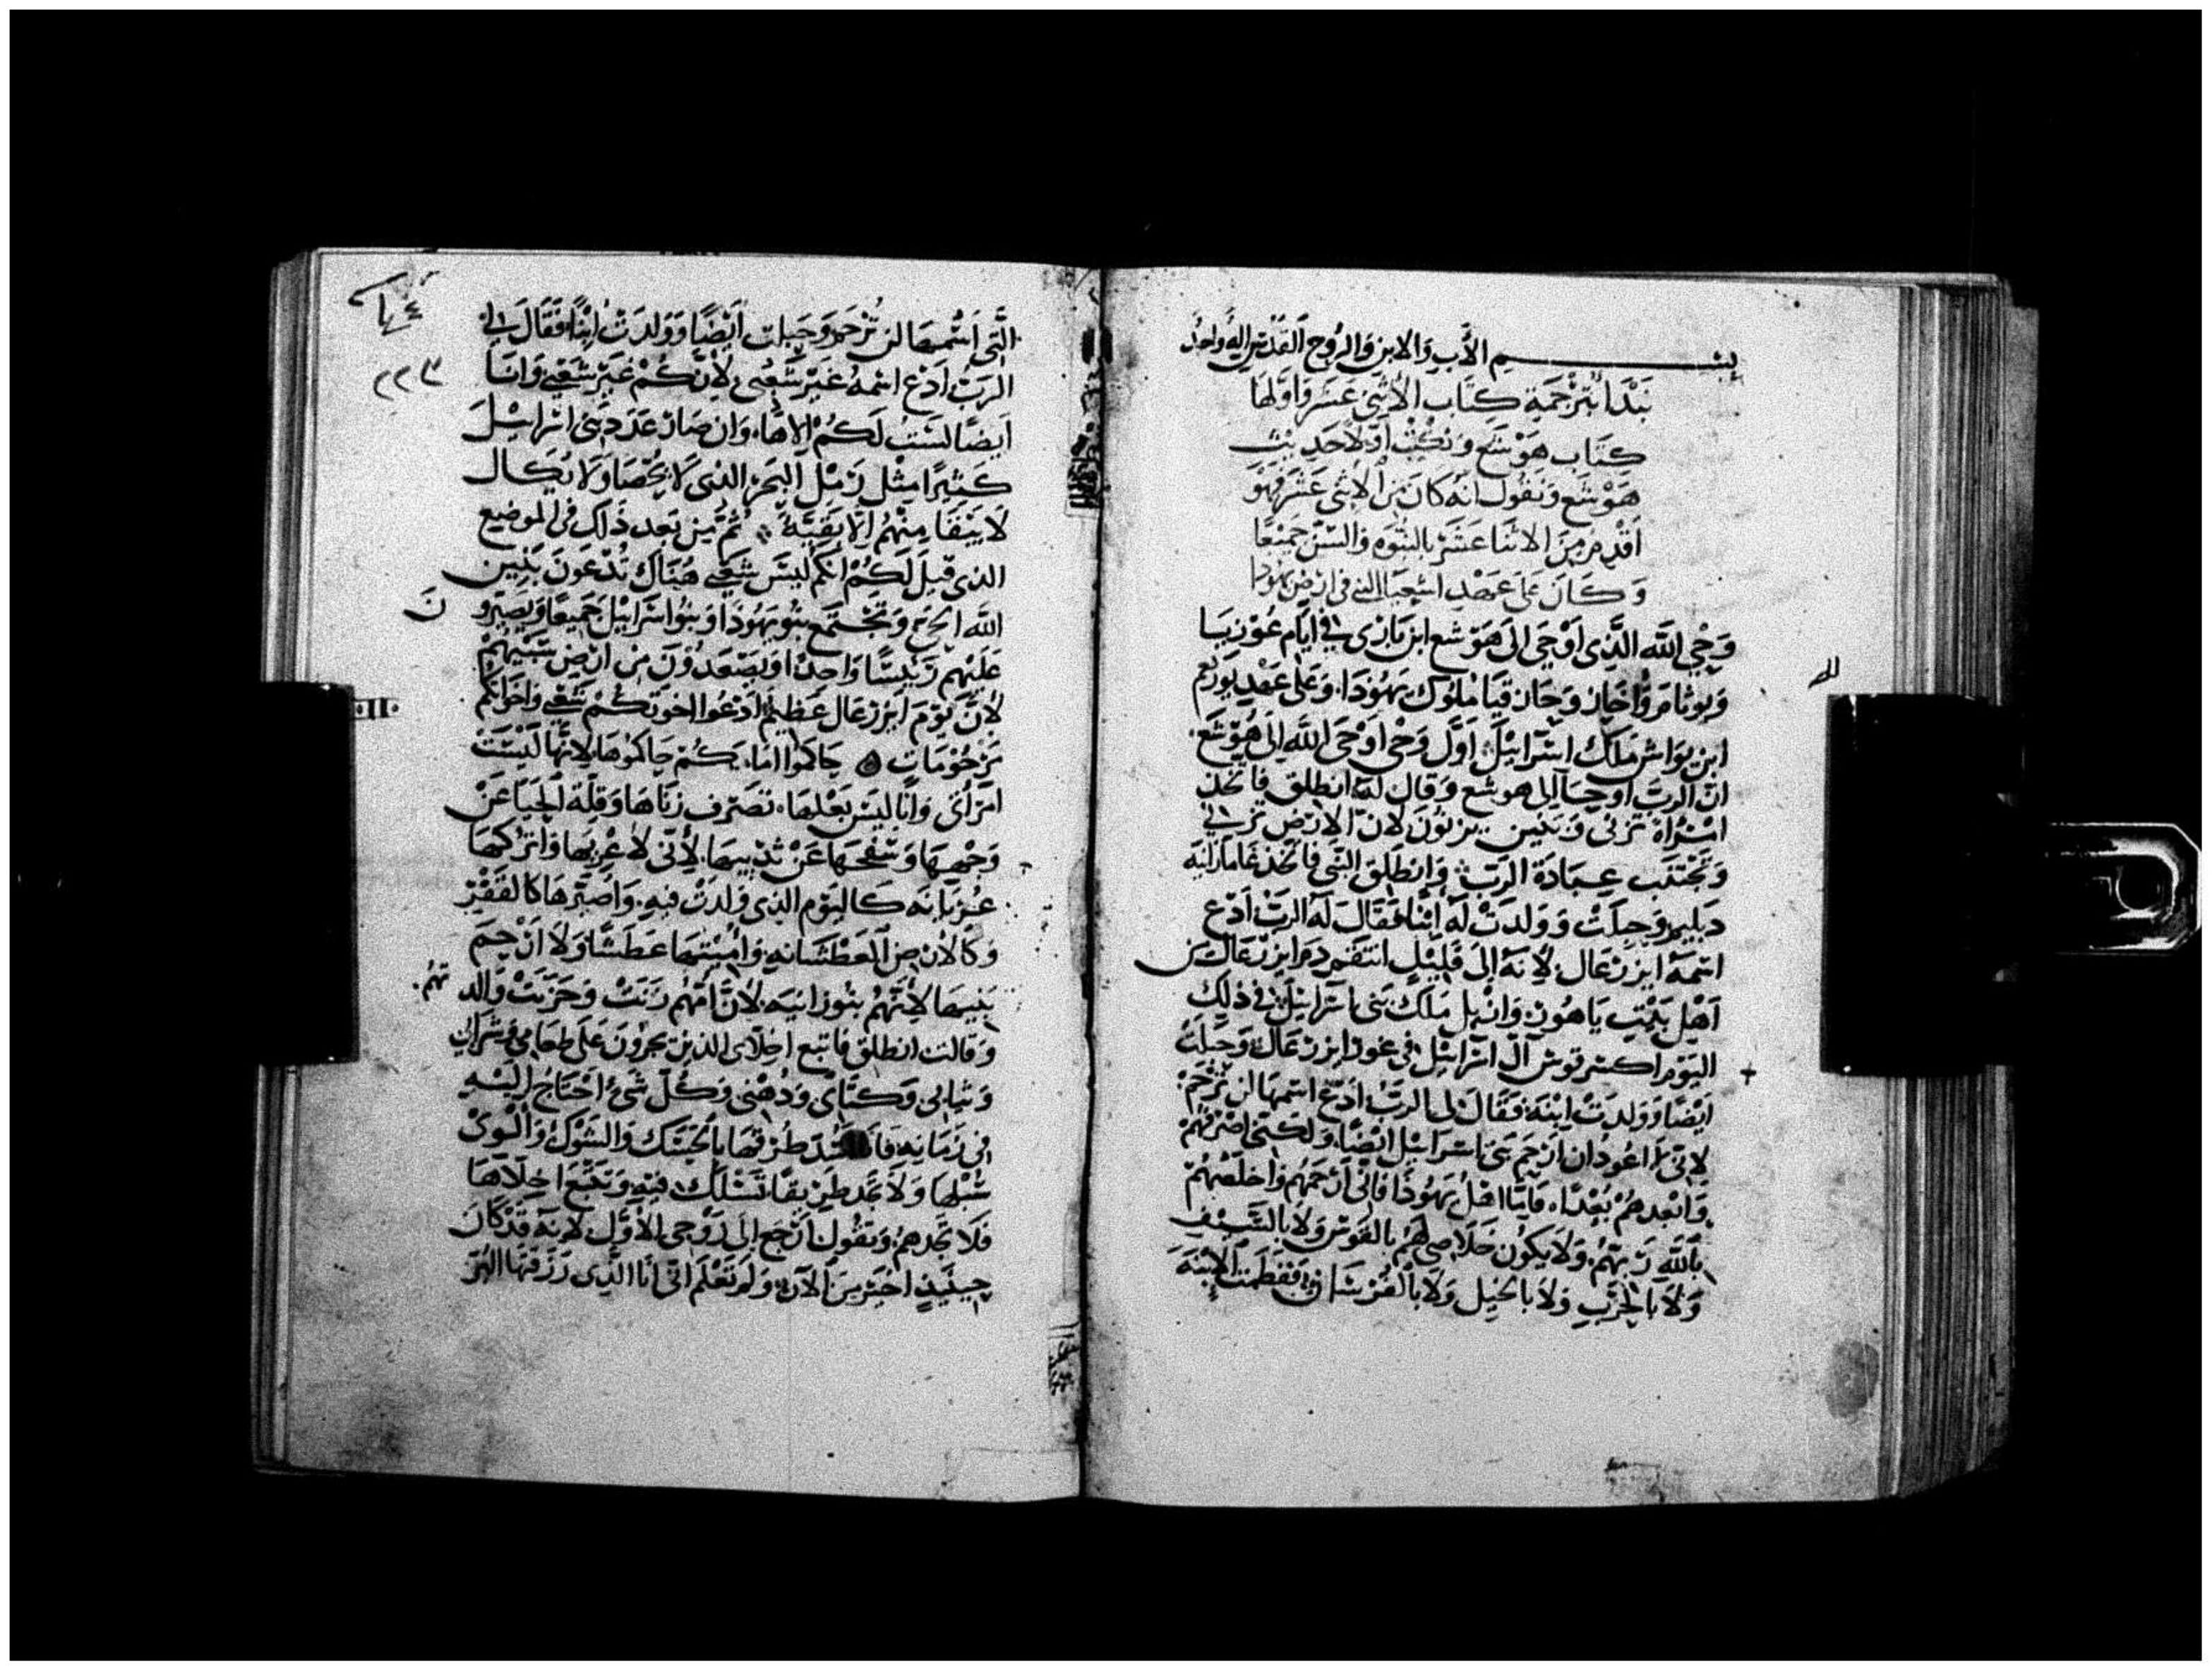 بسم الأب والابن والروح القدس إله واحد
نبدأ بترجمة كتاب الاثنى عشر واولها
كتاب هوشع ونكتب اولا حديث
هوشع ونقول انه كان من الاثنى عشر فهو
اقدم من الاثنا عشر بالنبوه والسن جميعا
وكان على عهد اشعيا النبي في ارض يهودا
وحي الله الذي اوحى الى هوشع ابن باري في ايام عوزيا
ويوثام واخاز وحازقيا ملوك يهودا وعلى عهد يوربعم
ابن يواش ملك اسرائيل اول وحي اوحى الله الى هوشع
ان الرب اوحا الى هوشع وقال له انطلق فاتخذ
امراة تزنى وبنين يزنون لان الارض تزني
وتجتنب عبادة الرب وانطلق النبي فاتخذ غامار ابنه
دبليم وحبلت وولدت له ابنا فقال له الرب ادع
اسمه ايزرعال لانه الى قليل انتقم دم ايزرعال من
اهل بيت ياهون وابطل ملك بني اسرائيل في ذلك
اليوم اكسر قوس ال اسرائيل في غور ايزرعال وحبلت
ايضا وولدت ابنة فقال لي الرب ادع اسمها لن ترحم
لاني لا اعود ان ارحم بني اسرائيل ايضا ولكني اصرفهم
وابعدهم بعدا فاما اهل يهوذا فاني ارحمهم واخلصهم
بالله ربهم ولا يكون خلاصي لهم بالقوس ولا بالسيف
ولا بالحرب ولا بالخيل ولا بالفرسان ففطمت الابنة
٢٢٣
التي اسمها لن ترحم وحبلت ايضا وولدت ابنا فقال لي
الرب ادع اسمه غير شعبي لانكم غير شعبي وانا
ايضا لست لكم الاها وان صار عدد بني اسرائيل
كثيرا مثل رمل البحر الذي لا يحصا ولا يكال
لا يبقا منهم الا بقية ثم من بعد ذلك في الموضع
الذي قيل لكم انكم ليس شعبي هناك تدعون بنين
الله الحي وتجتمع بنو يهوذا وبنو اسرائيل جميعا ويصيرون
عليهم رئيسا واحدا ويصعدون من ارض سبيهم
لان يوم ايزرعال عظيم ادعوا اخوتكم شعبي واخواتكم
مرحومات حاكموا امايكم حاكموها لانها ليست
امراتي وانا ليس بعلها تصرف زناها وقلة الحيا عن
وجهها وسفحها عن ثدييها لاني لا عريها واتركها
عريانه كاليوم الذي ولدت فيه واصيرها كالقفر
وكالارض العطشانه واميتها عطشا ولا ارحم
بنيها لانهم بنو زانيه لان امهم زنت وخزيت والدتهم
وقالت انطلق فاتبع اخلاي الذين يجرون علي طعامي وشرابي
وثيابي وكتاني ودهني وكل شيء احتاج اليه
في زمانه فانا اسد طرقها بالحسك والشوك والوي
سبلها ولا تجد طريقا تسلك فيه وتتبع اخلاها
فلا تجدهم وتقول ارجع الى زوجي الاول لانه قد كان
حينيذ اخير من الآن ولم تعلم اني انا الذي رزقتها البر